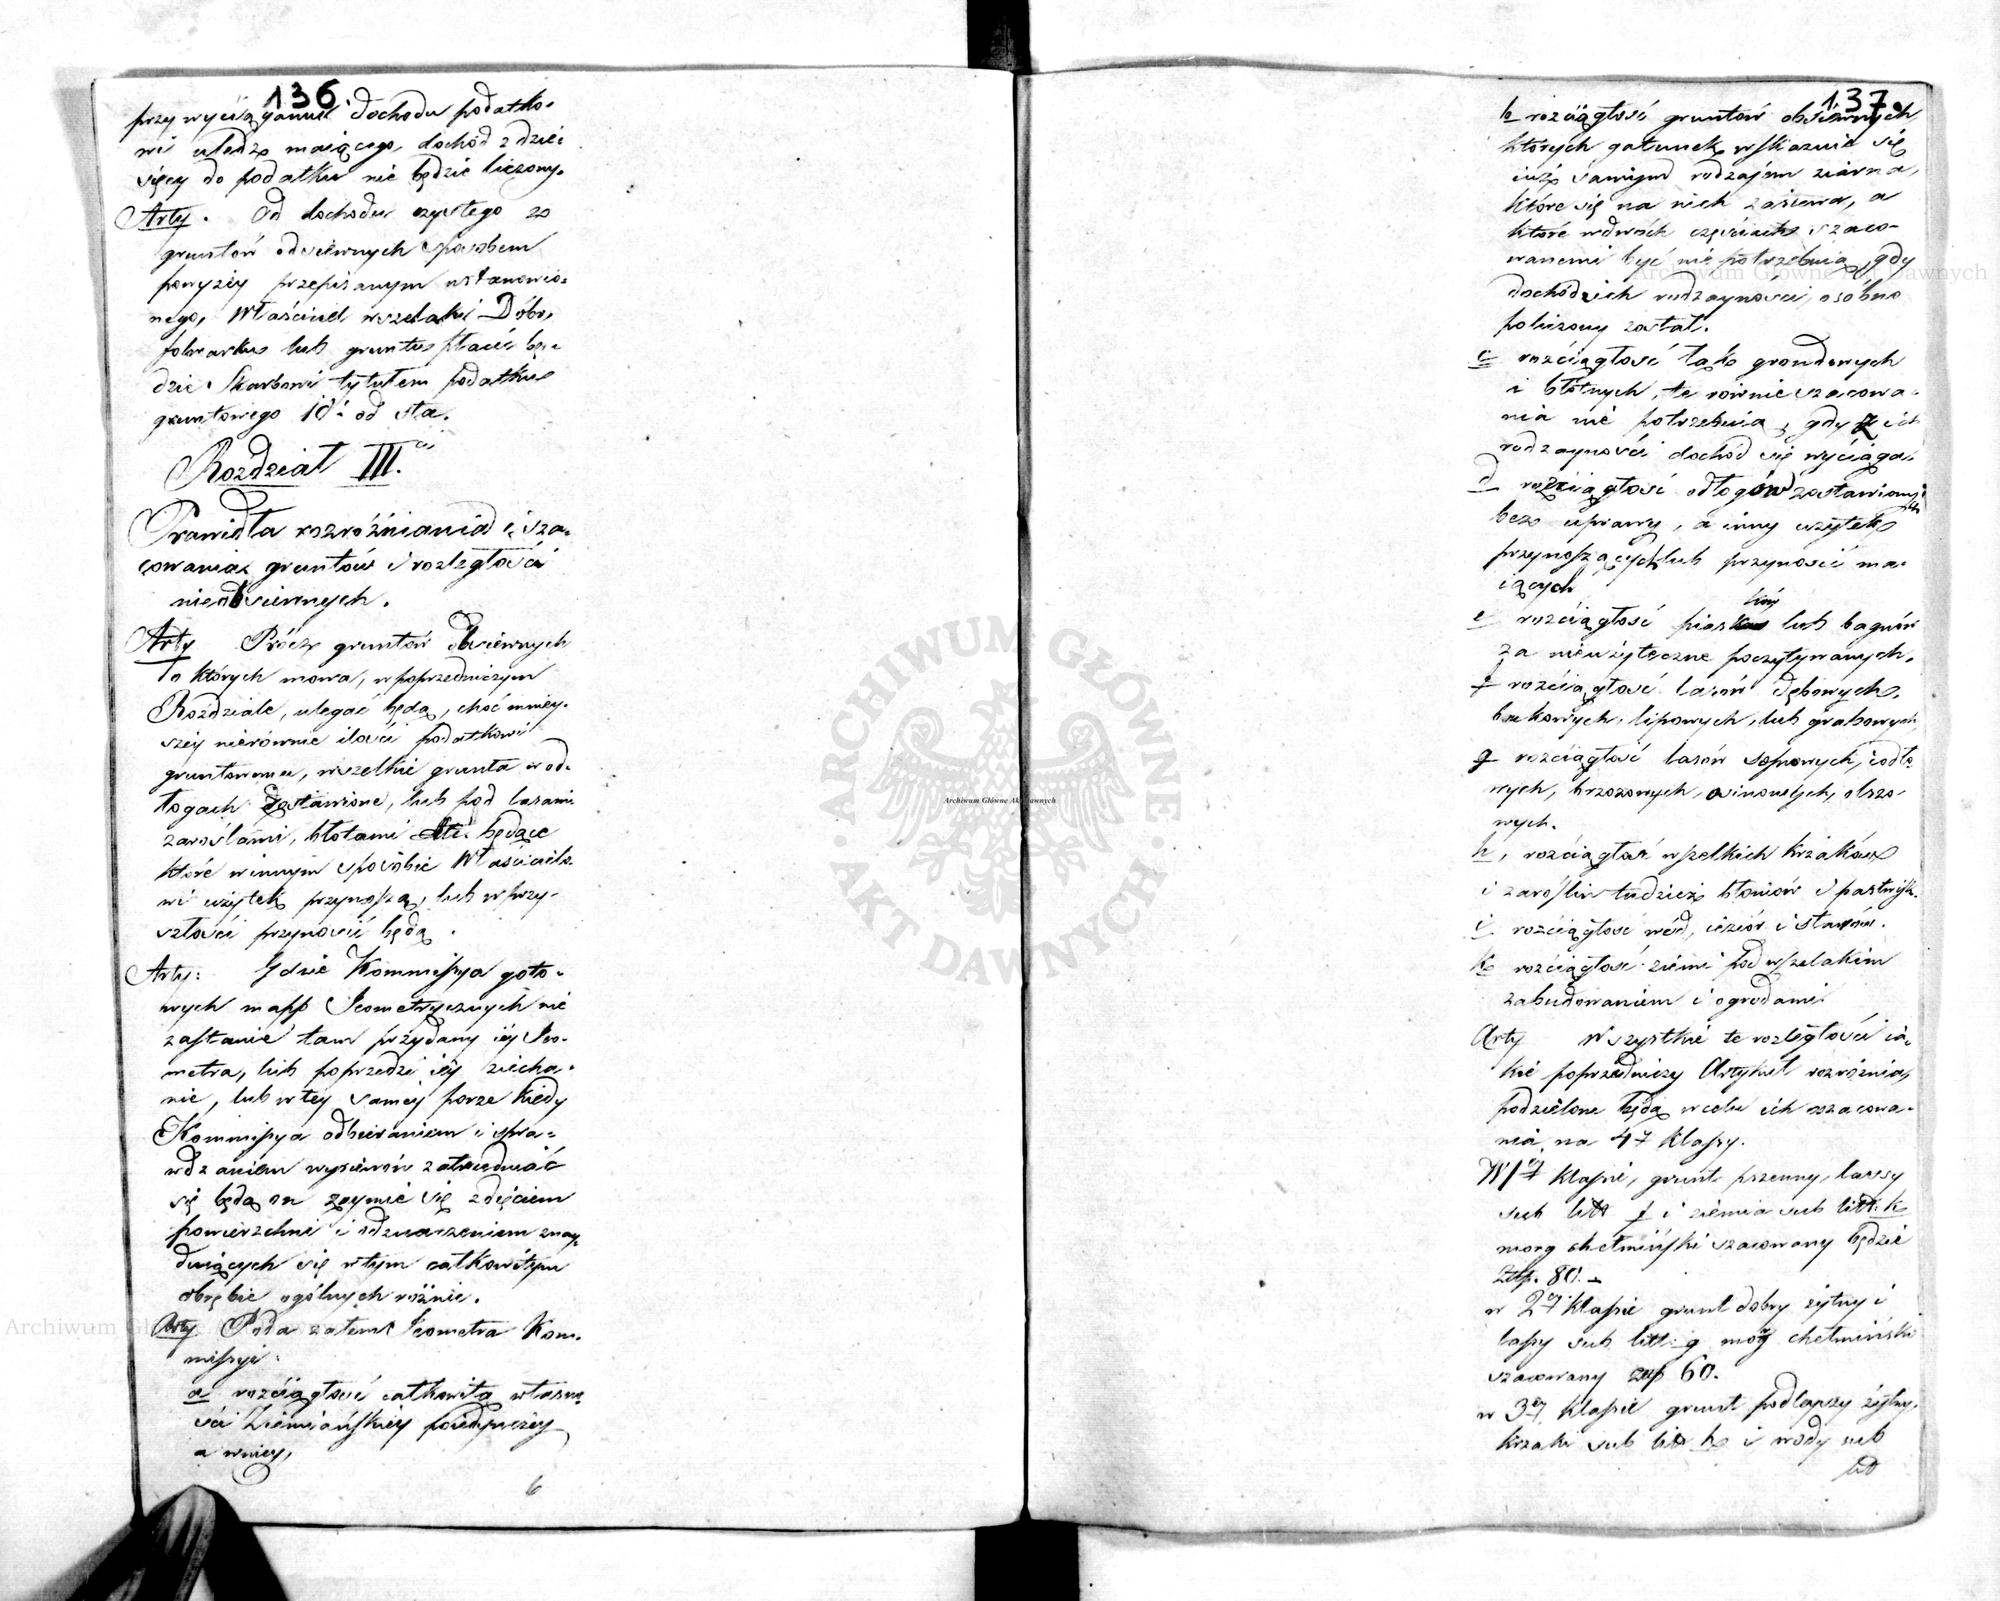 136
przy wyciąganiu dochodu podatko-
wi uledz maiącego, dochód z dzie-
sięcy do podatku nie będzie liczony.
Arty. Od dochodu czystego z
gruntów obsiewnych sposobem
powyżey przepisanym ustanowio-
nego, Właściciel wszelaki Dóbr,
folwarku lub gruntu płacić bę-
dzie Skarbowi tytułem podatku
gruntowego 10. od sta.
Rozdział III.
Prawidła rozróżniania i sza-
cowania gruntów i rozległości
nieobsiewnych.
Arty Prócz gruntów obsiewnych
o których mowa, w poprzedniczym
Rozdziale, ulegać będą, choć mniey-
szey nierównie ilości podatkowi
gruntowemu, wszelkie grunta w od-
łogach zostawione, lub pod lasami
zaroślami, błotami będące
które w innym sposobie Właścicielo-
wi użytek przynoszą, lub w przy-
szłości przynosić będą.
Arty: Gdzie Kommissya goto-
wych mapp Jeometrycznych nie
zastanie tam przydany iéy Jeo-
metra, lub poprzedzi iéy ziecha-
nie, lub w tey samey porze kiedy
Kommissya odbieraniem i spra-
wdzaniem wysiewów zatrudniać
się będą on zaymie się zdięciem
powierzchni i odznaczeniem znay-
duiących się w tym całkowitym
obrębie ogólnych różnic.
Arty Poda zatem Jeometra Kom-
missyi:
a rozciągłość całkowitą własno-
ści Ziemiańskiey poiedynczey
a w niey,
6
137
b rozciągłość gruntów obsiewnych
których gatunek wskazuie się
iuż samym rodzajem ziarna,
które się na nich zasiewa, a
które w dwóch częściach szaco-
wanemi być nie potrzebuią, gdy
dochód z ich rodzayności osobno
policzony został.
c rozciągłość łąk grondowych
i błotnych, te równie szacowa-
nia nie potrzebuią, gdy z ich
rodzayności dochód się wyciąga.
d rozciągłość odłogów zostawionych
bez uprawy, a inny użytek
przynoszących lub przynosić ma-
iących
e rozciągłość piasków lub bagnów
za nieużyteczne poczytywanych.
f rozciągłość lasów dębowych,
bukowych, lipowych, lub grabowych,
g rozciągłość lasów sosnowych, iodło-
wych, brzozowych, osinowych, olszo-
wych.
h, rozciągłość wszelkich krzaków
i zaroślin tudzież błoniów i pastwisk.
i. rozciągłość wód, iezior i stawów.
k rozciągłość ziemi pod wszelakim
zabudowaniem i ogrodami.
Arty Wszystkie te rozległości ia-
kie poprzedniczy Artykuł rozróżnia,
podzielone będą w celu ich oszacowa-
nia na 47 klassy.
W 1ey klassie, grunt pszenny, lassy
sub litt f i ziemia sub litt. k
morg chełmiński szacowany będzie
Złp. 80. –
w 2ey klassie grunt dobry żytny i
lassy sub litt: g morg chełmiński
szacowany złp 60.
w 3ey klassie grunt podleyszy żytny,
krzaki sub litt h i wody sub
litt
Archiwum Główne Akt Dawnych
ARCHIWUM GŁÓWNE · AKT DAWNYCH ·
Archiwum Główne Akt Dawnych